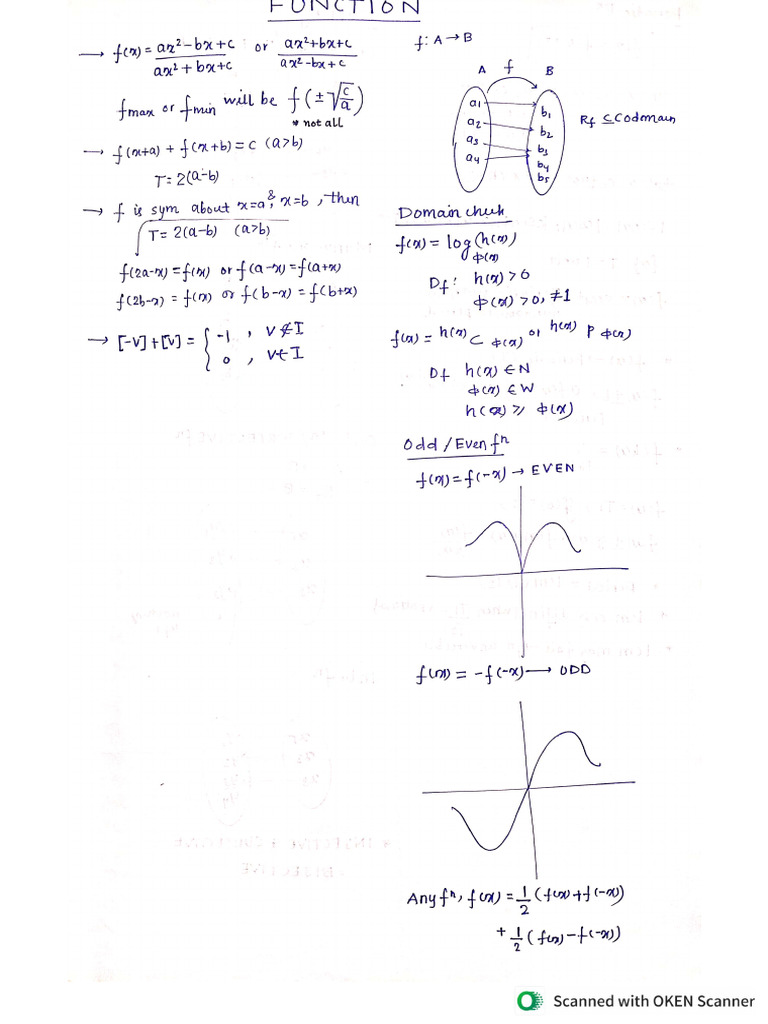 FUNCTION
→ f(x) = ax²-bx+c / ax²+bx+c or ax²+bx+c / ax²-bx+c
fmax or fmin will be f(±√(c/a))
* not all
→ f(x+a) + f(x+b) = c (a>b)
T = 2(a-b)
→ f is sym about x=a & x=b, then
T = 2(a-b) (a>b)
f(2a-x) = f(x) or f(a-x) = f(a+x)
f(2b-x) = f(x) or f(b-x) = f(b+x)
→ [-v]+[v] = { -1, v∉I
0, v∈I
f: A→B
A f B
a1 b1
a2 b2
a3 b3
a4 b4
b5
Rf ⊆ Codomain
Domain chuk
f(x) = log(h(x))
Φ(x)
Df: h(x) > 0
Φ(x) > 0, ≠1
f(x) = h(x) C Φ(x) or h(x) P Φ(x)
Df h(x) ∈ N
Φ(x) ∈ W
h(x) ≥ Φ(x)
Odd / Even fⁿ
f(x) = f(-x) → EVEN
f(x) = -f(-x) → ODD
Any fⁿ, f(x) = 1/2 (f(x) + f(-x))
+ 1/2 (f(x) - f(-x))
Scanned with OKEN Scanner